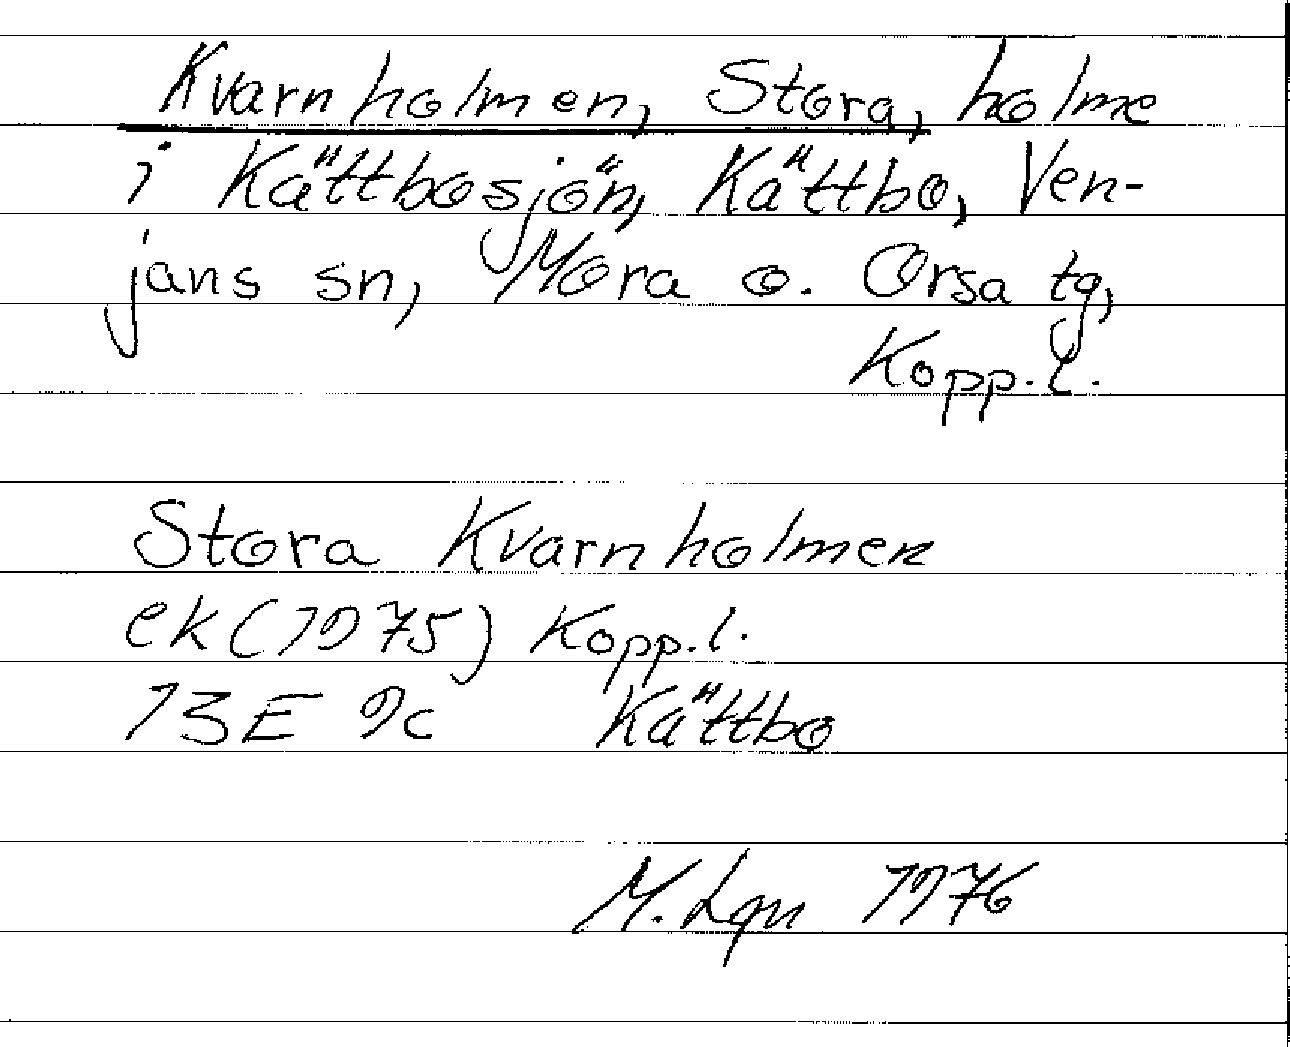 Kvarnholmen, Stora, holme
i Kättbosjön, Kättbo, Ven-
jans sn, Mora o. Orsa tg,
Kopp. l.
Stora Kvarnholmen
ek (1975) Kopp. l.
13E 9c Kättbo
M. Lgn 1976